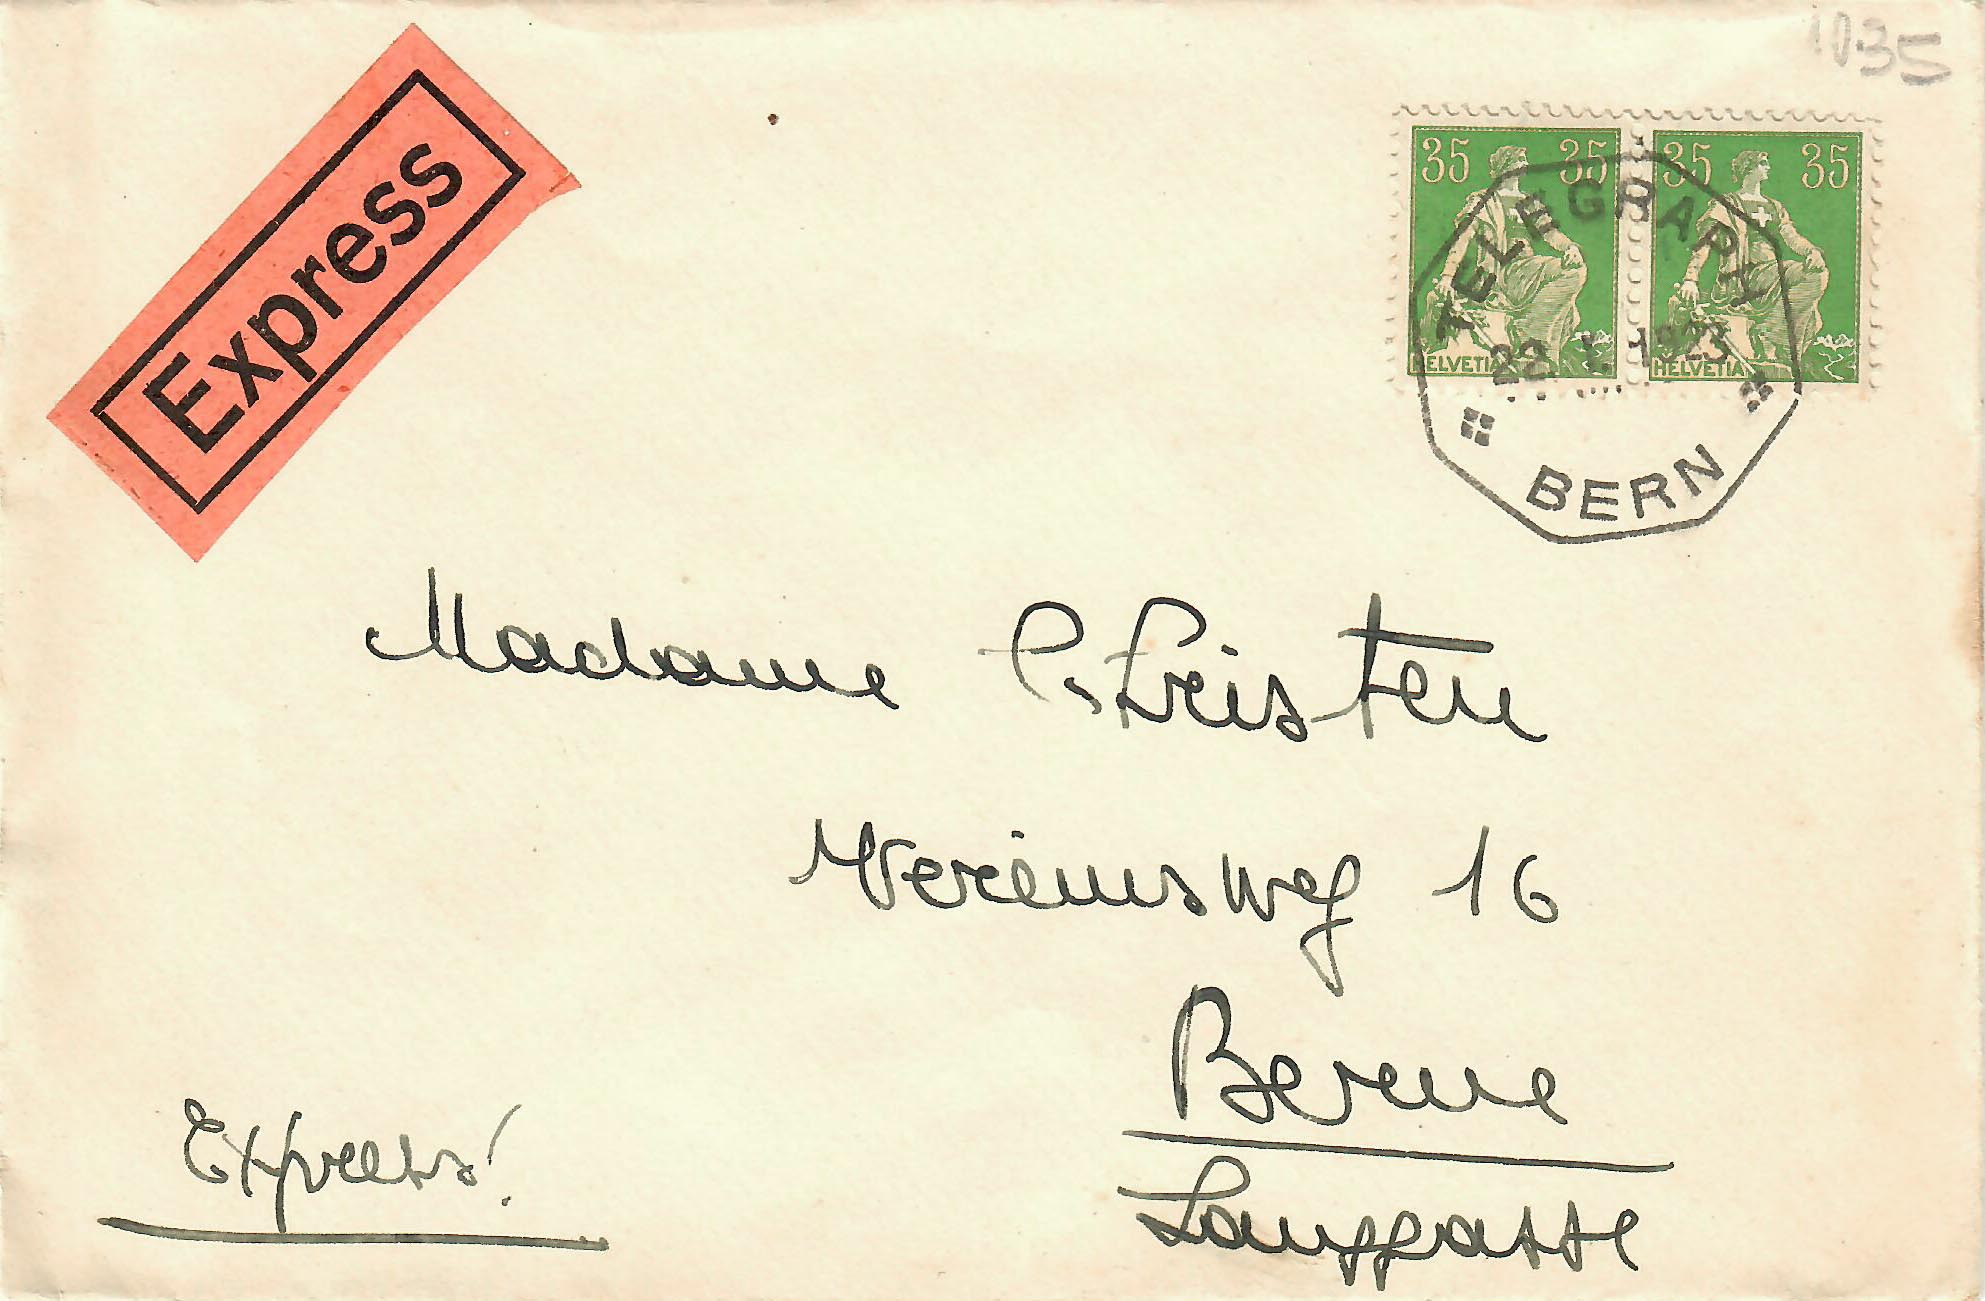 1035
Express
35 35 35 35
TELEGRAPH
HELVETIA HELVETIA
22 1923
BERN
Madame
Vereinsweg 16
Berne
Länggasse
Express!